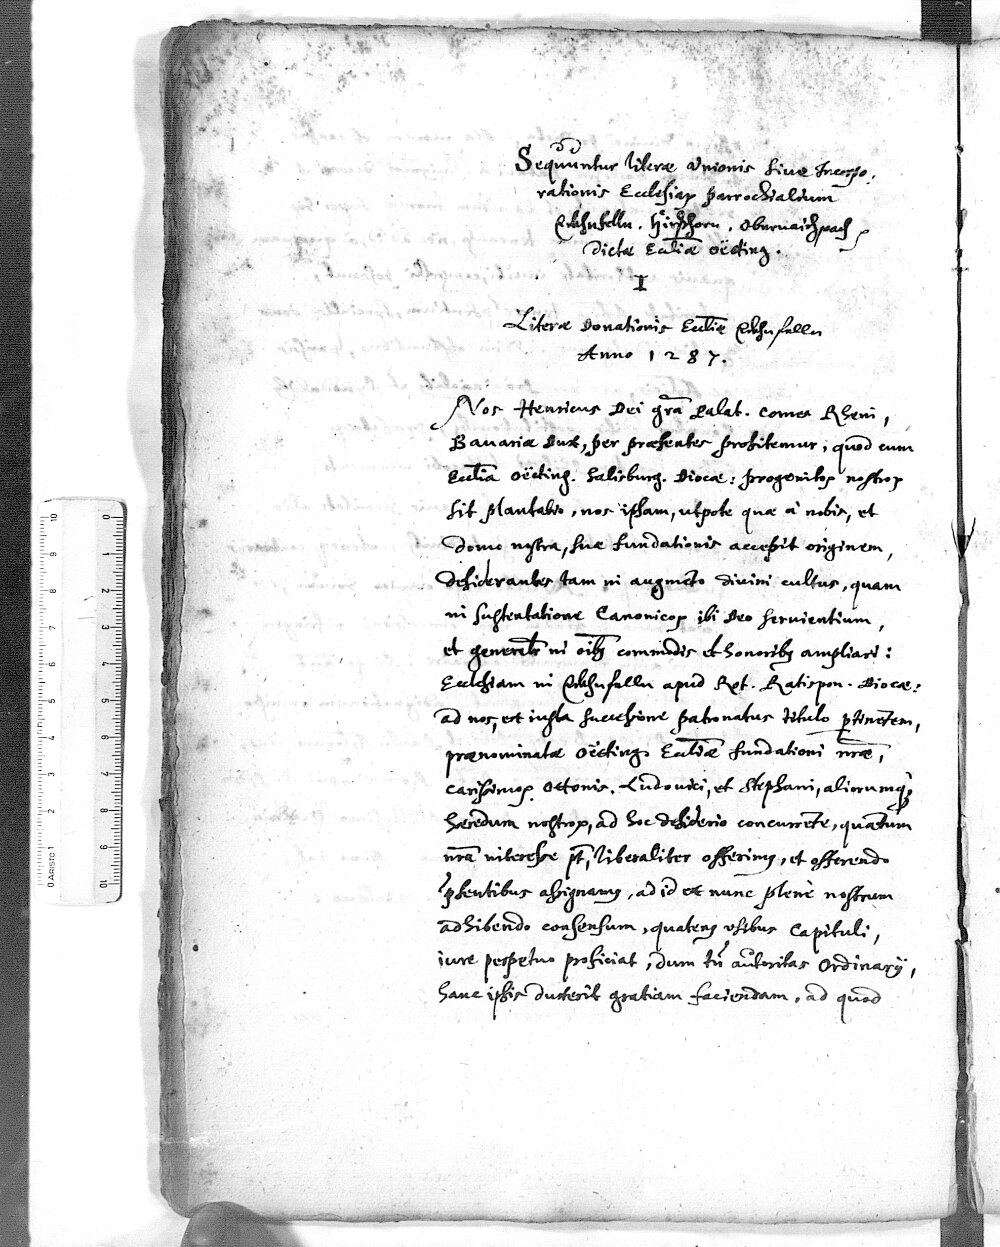 Sequuntur literæ Vnionis siue Incorpo-
rationis Ecclesiaꝝ parrochialium
Hirschhorn, Obernaichpach,
Dictæ Eccliæ Oëtting.
I
Literæ Donationis Eccliæ
Anno 1287.
Nos Henricus Dei grã Palat. Comes Rheni,
Bauariæ Dux, per præsentes profitemur, quod cum
Ecclia Oëtting. Salisburg. Dioce: progenitoꝝ nostroꝝ
sit plantatio, nos ipsam, utpote quæ à nobis, et
domo nostra, suæ fundationis accepit originem,
desiderantes tam in augmẽto diuini cultus, quam
in sustentatione Canonicoꝝ ibi Deo seruientium,
et generalr in oĩbꝫ commodis et honoribꝫ ampliari:
Ecclesiam in apud Rot. Ratispon. Dioce:
ad nos, ex iusta successione patronatus titulo ꝑtinẽtem,
prænominatæ Oëtting. Eccliæ fundationi nr̃æ,
carissimoꝝ Ottonis, Ludouici, et Stephani, aliorumqꝫ
hæredum nostroꝝ, ad hoc desiderio concurrẽte, quãtum
nr̃a interesse põt, liberaliter offerimꝰ, et offerendo
p̃sentibus assignamꝰ, ad id ex nunc plenè nostrum
adhibendo consensum, quatenꝰ vsibus Capituli,
iure perpetuo proficiat, dum tñ autoritas Ordinarij,
hanc ipsis duxerit gratiam faciendam, ad quod